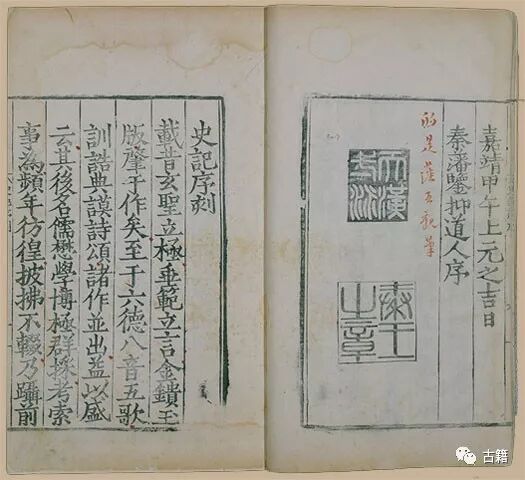 嘉靖甲午上元之吉日
秦藩鑒抑道人序
天潢
秦王之章
史記序刻
載昔玄聖立極垂範立言金鐀玉
版肇于作矣至于六德八音五歌
訓誥典謨詩頌諸作並出益以盛
云其後名儒懋學博極群採考索
事為頻年彷徨披拂不輟乃躡前
古籍